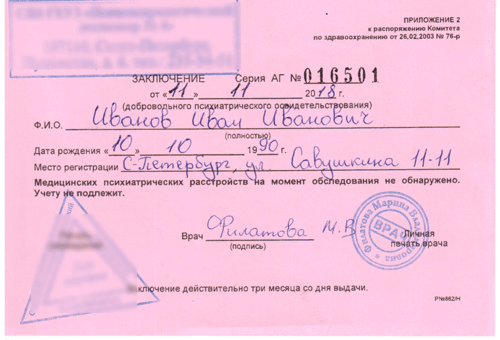 ПРИЛОЖЕНИЕ 2
к распоряжению Комитета
по здравоохранению от 26,02,2003 № 76-р
ЗАКЛЮЧЕНИЕ Серия АГ № 016501
от «11» 11 2018г.
(добровольного психиатрического освидетельствования)
Ф.И.О. Иванов Иван Иванович
(полностью)
Дата рождения «10» 10 1990г.
Место регистрации С-Петербург, ул. Савушкина 11-11
Медицинских психиатрических расстройств на момент обследования не обнаружено.
Учету не подлежит.
Врач Филатова М.В
(подпись)
Личная
печать врача
ВРАЧ
Филатова Марина
Заключение действительно три месяца со дня выдачи.